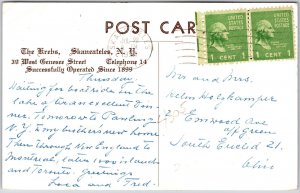 POST CAR
The Krebs, Skaneateles, N. Y.
32 West Genesee Street Telephone 14
Successfully Operated Since 1899
UNITED STATES POSTAGE
1 CENT 1
UNITED STATES POSTAGE
1 CENT 1
Thursday
Waiting for boat ride on the
lake after an excellent din-
ner. Tomorrow to Pauling
N.Y. my brothers new home
Then through New England to
Montreal, later 1000 islands
and Toronto. Greetings
Lora and Fred.
Mr and Mrs.
Helm Holzkamper
Elmwood Ave
off Green
South Euclid 21,
Ohio